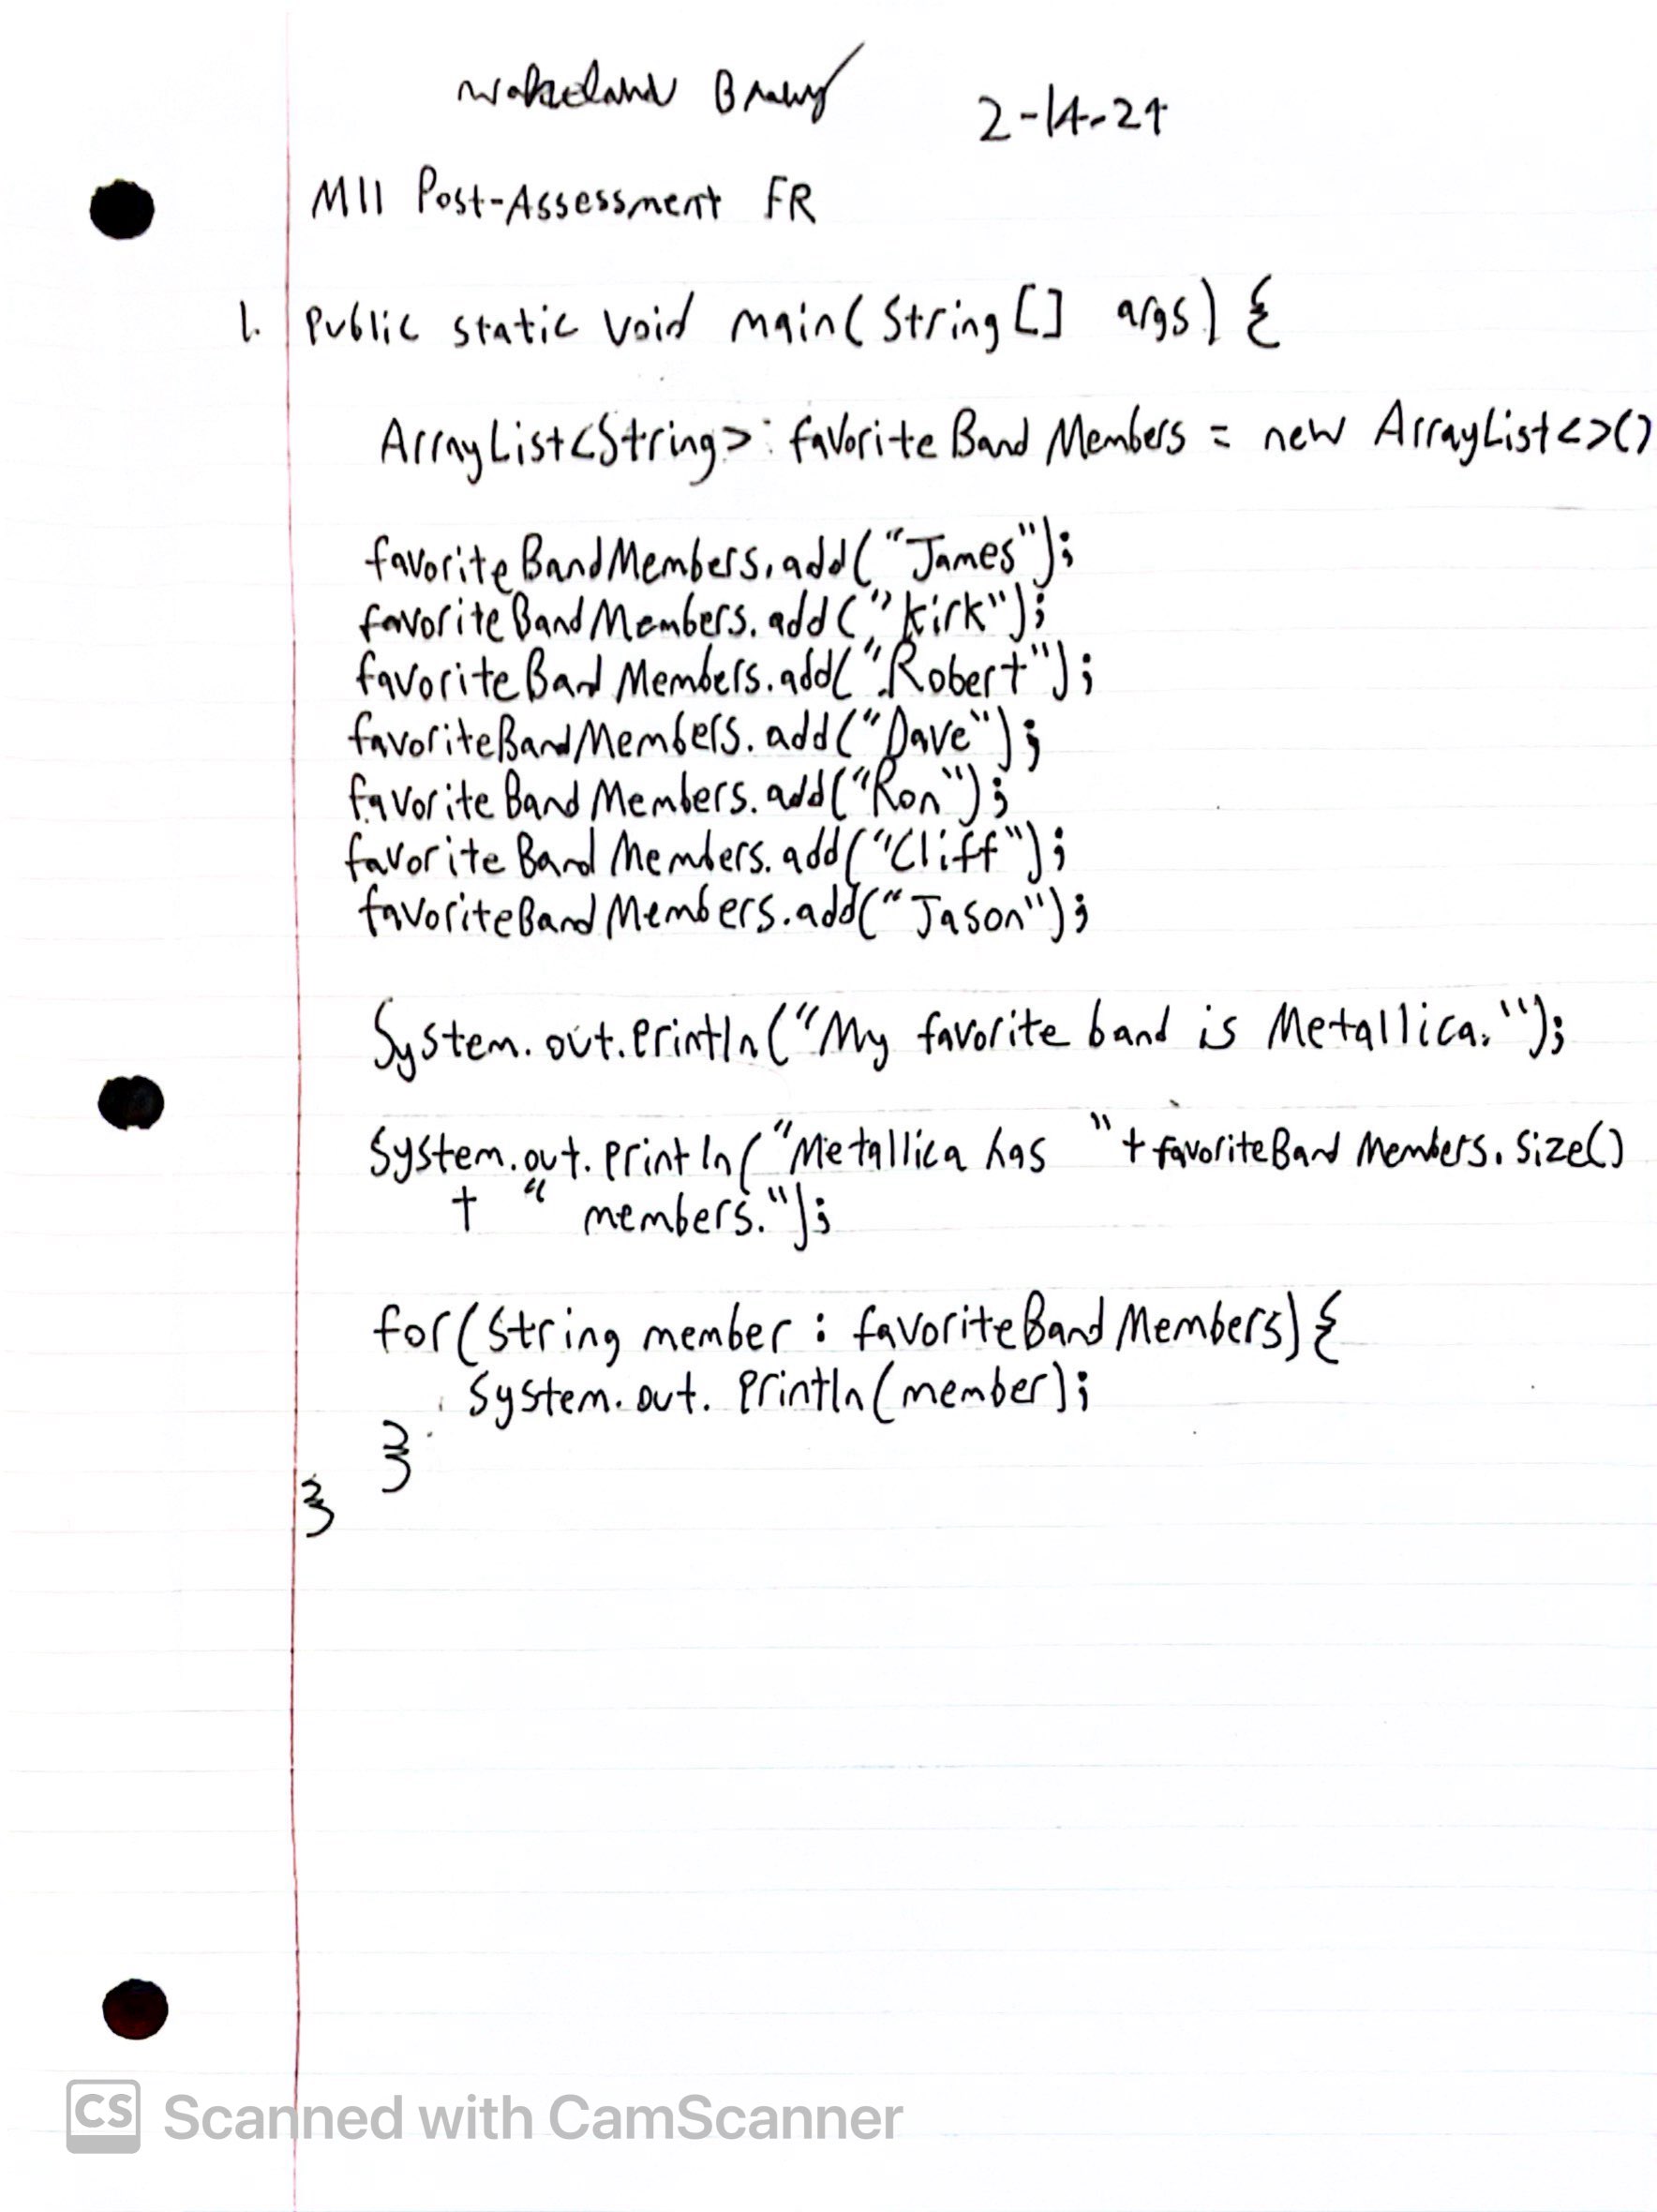 2-14-24
M11 Post-Assessment FR
1. public static void main(String[] args) {
ArrayList<String> favoriteBandMembers = new ArrayList<>()
favoriteBandMembers.add("James");
favoriteBandMembers.add("Kirk");
favoriteBandMembers.add("Robert");
favoriteBandMembers.add("Dave");
favoriteBandMembers.add("Ron");
favoriteBandMembers.add("Cliff");
favoriteBandMembers.add("Jason");
System.out.println("My favorite band is Metallica.");
System.out.println("Metallica has " + favoriteBandMembers.size()
+ " members.");
for(String member : favoriteBandMembers){
System.out.println(member);
}
}
CS Scanned with CamScanner